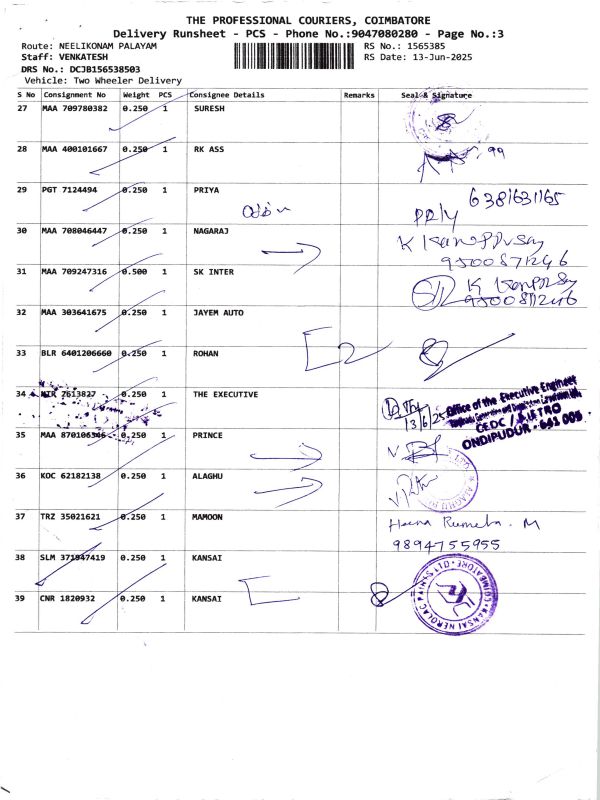 THE PROFESSIONAL COURIERS, COIMBATORE
Delivery Runsheet - PCS - Phone No.:9047080280 - Page No.:3
Route: NEELIKONAM PALAYAM RS No.: 1565385
Staff: VENKATESH RS Date: 13-Jun-2025
DRS No.: DCJB156538503
Vehicle: Two Wheeler Delivery
S No Consignment No Weight PCS Consignee Details Remarks Seal & Signature
27 MAA 709780382 0.250 1 SURESH
28 MAA 400101667 0.250 1 RK ASS
29 PGT 7124494 0.250 1 PRIYA 6381631165
30 MAA 708046447 0.250 1 NAGARAJ K
9500871246
31 MAA 709247316 0.500 1 SK INTER K
9500871246
32 MAA 303641675 0.250 1 JAYEM AUTO
33 BLR 6401206660 0.250 1 ROHAN 2
34 7613827 0.250 1 THE EXECUTIVE
13/6/25 Office of the Executive Engineer
CEDC / METRO
ONDIPUDUR - 641 005
35 MAA 870106346 0.250 1 PRINCE
36 KOC 62182138 0.250 1 ALAGHU
37 TRZ 35021621 0.250 1 MAMOON
9894755955
38 SLM 371947419 0.250 1 KANSAI
39 CNR 1820932 0.250 1 KANSAI
KANSAI NEROLAC PAINTS LTD COIMBATORE